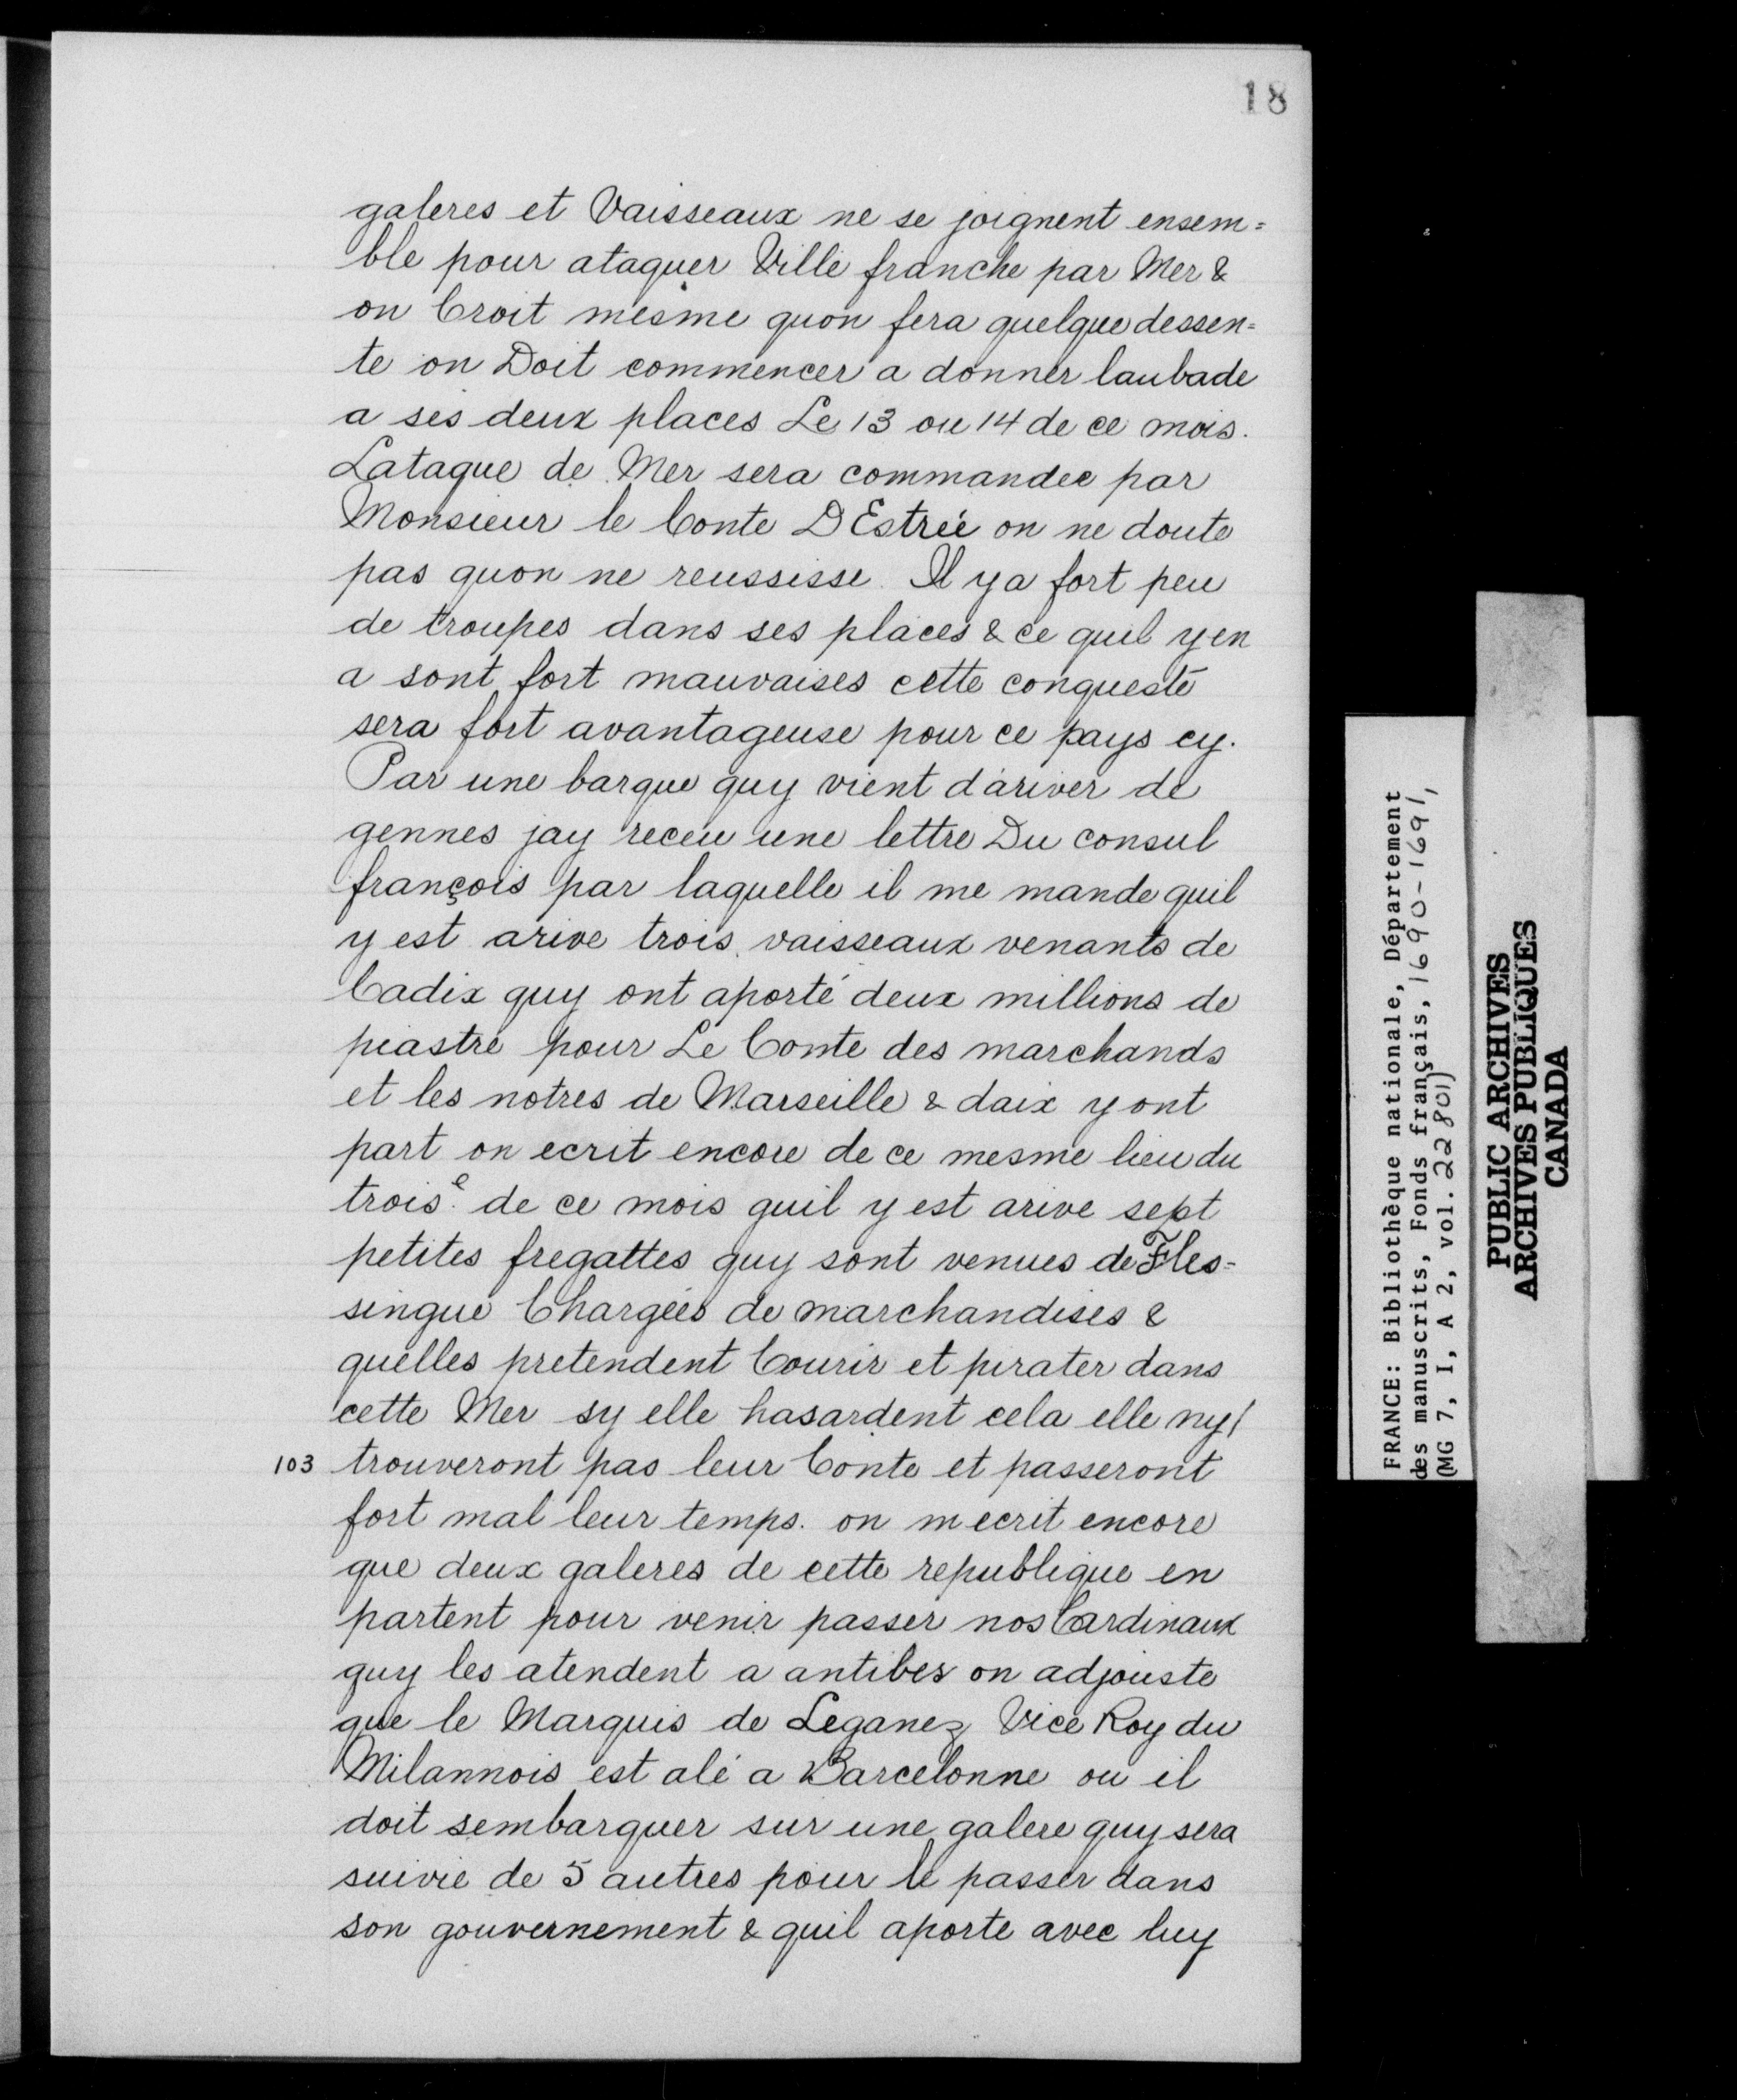 18
galeres et Vaisseaux ne se joignent ensem=
ble pour ataquer Ville franche par Mer &
on Croit mesme quon fera quelque dessen=
te on Doit commencer a donner laubade
a ses deux places Le 13 ou 14 de ce mois.
Lataque de Mer sera commandee par
Monsieur le Conte D Estrée on ne doute
pas quon ne reussisse. Il y a fort peu
de troupes dans ses places & ce quil y en
a sont fort mauvaises cette conqueste
sera fort avantageuse pour ce pays cy.
Par une barque quy vient dariver de
gennes jay receu une lettre Du consul
françois par laquelle il me mande quil
y est arive trois vaisseaux venants de
Cadix quy ont aporté deux millions de
piastre pour Le Conte des marchands
et les notres de Marseille & daix y ont
part on ecrit encore de ce mesme lieu du
trois.e de ce mois quil y est arive sept
petites fregattes quy sont venues de Fles=
singue Chargées de marchandises &
quelles pretendent Courir et pirater dans
cette Mer sy elle hasardent cela elle ny/
103 trouveront pas leur Conte et passeront
fort mal leur temps. on m ecrit encore
que deux galeres de cette republique en
partent pour venir passer nos Cardinaux
quy les atendent a antibes on adjouste
que le Marquis de Leganez Vice Roy du
Milannois est alé a Barcelonne ou il
doit sembarquer sur une galere quy sera
suivie de 5 autres pour le passer dans
son gouvernement & quil aporte avec luy
FRANCE: Bibliothèque nationale, Département
des manuscrits, Fonds français, 1690-1691,
(MG 7, I, A 2, vol. 22801)
PUBLIC ARCHIVES
ARCHIVES PUBLIQUES
CANADA